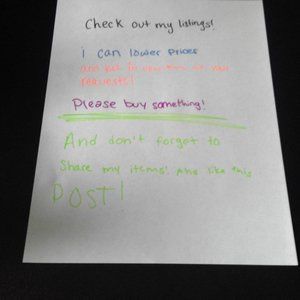 Check out my listings!
i can lower prices
and put in
requests!
Please buy something!
And don't forget to
Share my items! And like this
POST!